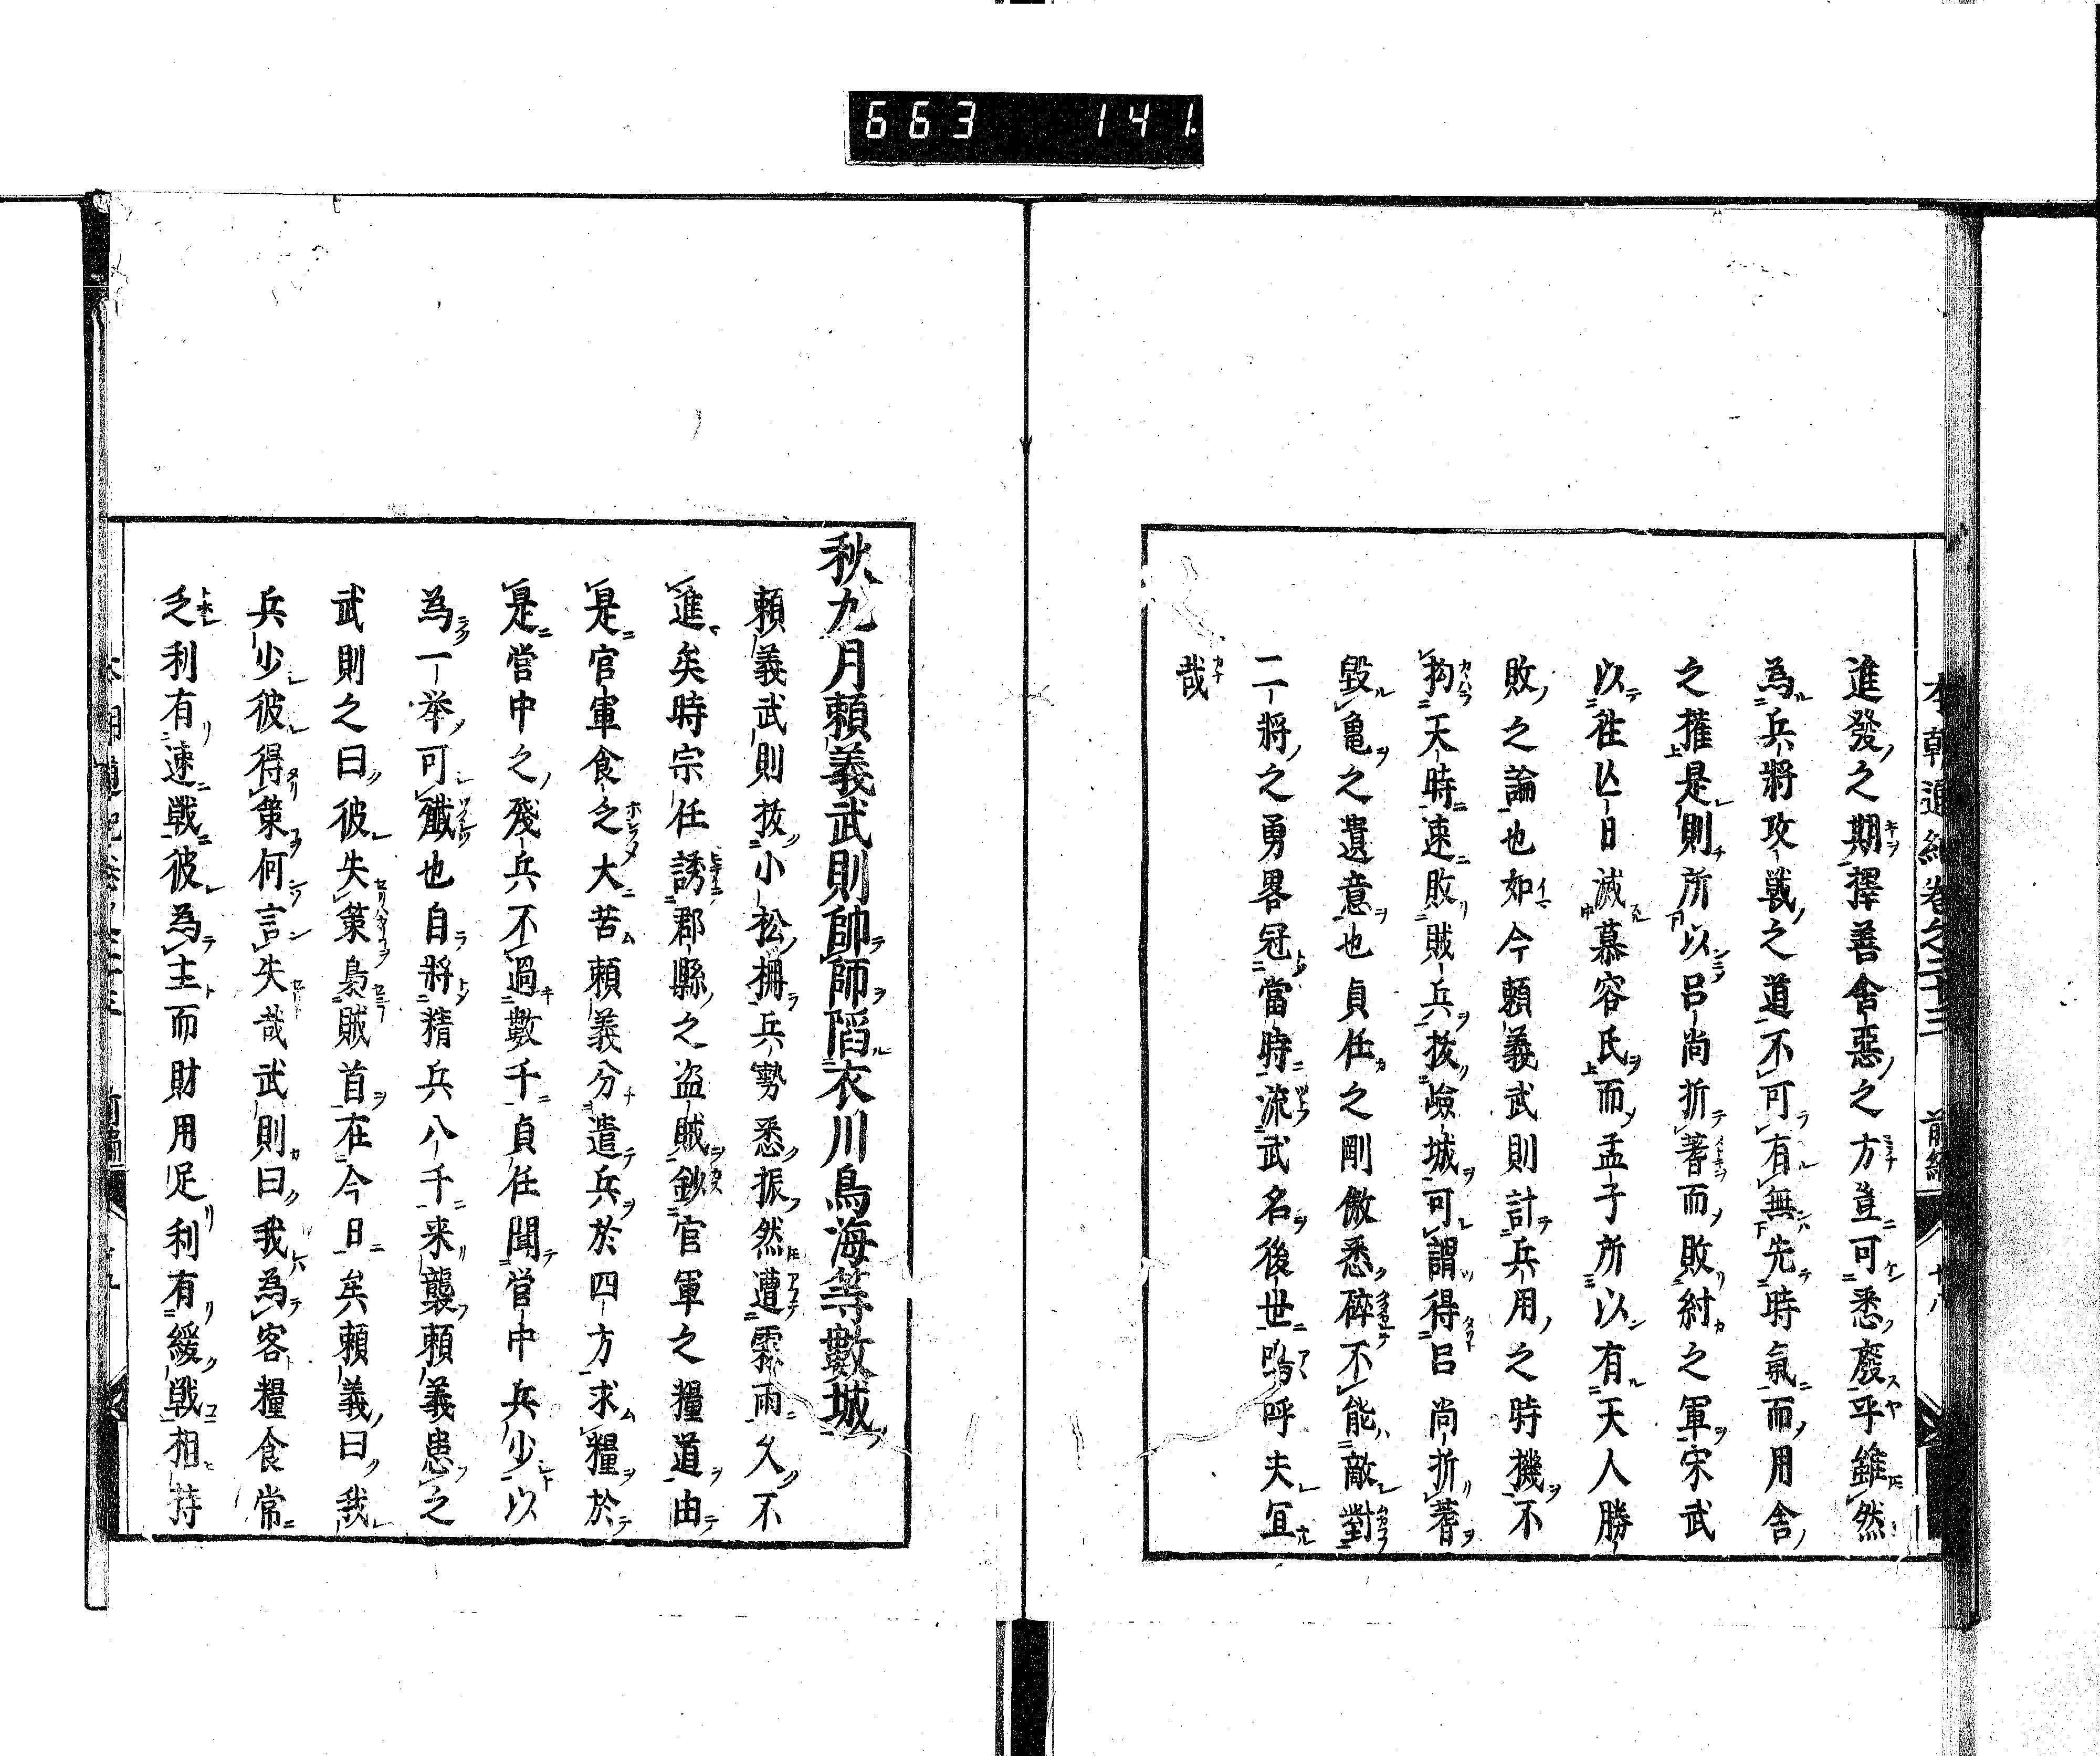 663 141
本朝通紀卷之二十三 前編 十八
進發之期擇善舍惡之方豈可悉廢乎雖然
為兵將攻戦之道不可有無先時氣而用舍
之權是則所以呂尚折蓍而敗紂之軍宋武
以往亡日滅慕容氏而孟子所以有天人勝
敗之論也如今頼義武則計兵用之時機不
拘天時速敗賊兵抜嶮城可謂得呂尚折蓍
毀亀之遺意也貞任之剛傲悉碎不能敵對
二將之勇畧冠當時流武名後世嗚呼夫宜
哉
秋九月頼義武則帥師䧟衣川鳥海等數城
頼義武則抜小松柵兵勢悉振然遭霖雨久不
進矣時宗任誘郡縣之盗賊鈔官軍之糧道由
是官軍食乏大苦頼義分遣兵於四方求糧於
是営中之殘兵不過數千貞任聞営中兵少以
為一挙可殱也自將精兵八千来襲頼義患之
武則之曰彼失策梟賊首在今日矣頼義曰我
兵少彼得策何言失哉武則曰我為客糧食常
乏利有速戦彼為主而財用足利有緩戦相持